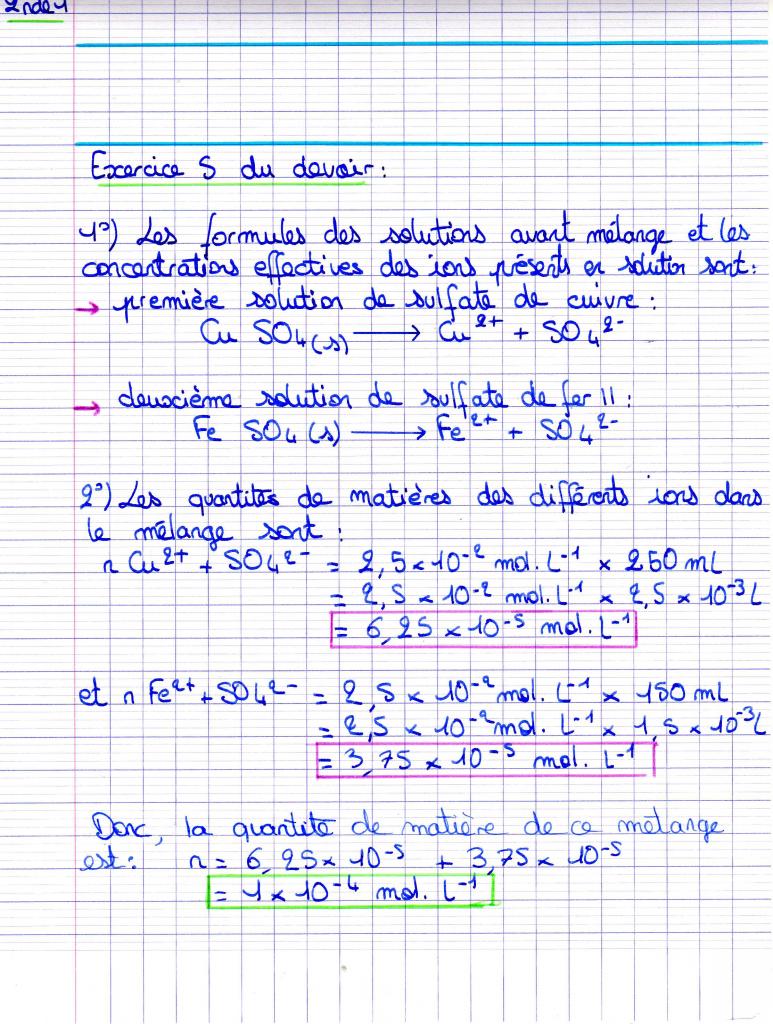 2nde4
Exercice 5 du devoir :
1°) Les formules des solutions avant mélange et les
concentrations effectives des ions présents en solution sont :
→ première solution de sulfate de cuivre :
Cu SO₄(s) ⟶ Cu²⁺ + SO₄²⁻
→ deuxième solution de sulfate de fer II :
Fe SO₄(s) ⟶ Fe²⁺ + SO₄²⁻
2°) Les quantités de matières des différents ions dans
le mélange sont :
n Cu²⁺ + SO₄²⁻ = 2,5 × 10⁻² mol. L⁻¹ × 250 mL
= 2,5 × 10⁻² mol. L⁻¹ × 2,5 × 10⁻³ L
= 6,25 × 10⁻⁵ mol. L⁻¹
et n Fe²⁺ + SO₄²⁻ = 2,5 × 10⁻² mol. L⁻¹ × 150 mL
= 2,5 × 10⁻² mol. L⁻¹ × 1,5 × 10⁻³ L
= 3,75 × 10⁻⁵ mol. L⁻¹
Donc, la quantité de matière de ce mélange
est : n = 6,25 × 10⁻⁵ + 3,75 × 10⁻⁵
= 1 × 10⁻⁴ mol. L⁻¹